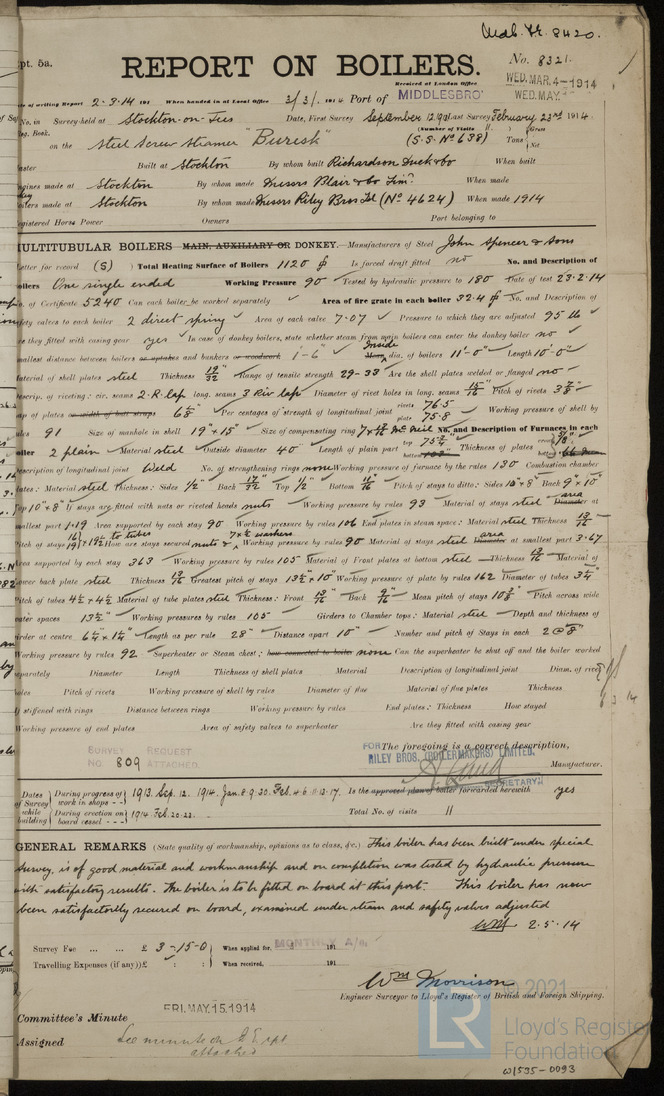 Mdb. Fr. 8420.
pt. 5a.
REPORT ON BOILERS.
No. 8321.
Received at London Office
WED. MAR. 4-1914
WED. MAY.
te of writing Report 2.3.14 191 When handed in at Local Office 3/3/. 1914 Port of MIDDLESBRO'
No. in Survey held at Stockton-on-Tees Date, First Survey September 12, 1913 Last Survey February 23rd 1914
eg. Book. (Number of Visits 11.)
on the Steel Screw Steamer "Buresk" (S.S. No 638) Tons { Gross Net
aster Built at Stockton By whom built Richardson Duck & Co When built
ngines made at Stockton By whom made Messrs Blair & Co Limd. When made
oilers made at Stockton By whom made Messrs Riley Bros Ld (No 4624) When made 1914
egistered Horse Power Owners Port belonging to
ULTITUBULAR BOILERS MAIN, AUXILIARY OR DONKEY.—Manufacturers of Steel John Spencer & Sons
Letter for record (S) Total Heating Surface of Boilers 1120 Is forced draft fitted no No. and Description of
oilers One single ended Working Pressure 90 Tested by hydraulic pressure to 180 Date of test 23.2.14
o. of Certificate 5240 Can each boiler be worked separately Area of fire grate in each boiler 32.4 No. and Description of
fety valves to each boiler 2 direct spring Area of each valve 7.07 Pressure to which they are adjusted 95 lb
re they fitted with casing gear yes In case of donkey boilers, state whether steam from main boilers can enter the donkey boiler no
mallest distance between boilers or uptakes and bunkers or woodwork 1'-6" Inside Mean dia. of boilers 11'-0" Length 10'-0"
aterial of shell plates steel Thickness 19/32 Range of tensile strength 29-33 Are the shell plates welded or flanged no
escrip. of riveting: cir. seams 2.R.lap long. seams 3 Riv lap Diameter of rivet holes in long. seams 15/16" Pitch of rivets 3 7/8"
ap of plates or width of butt straps 6 5/8" Per centages of strength of longitudinal joint rivets 76.5 plate 75.8 Working pressure of shell by
ules 91 Size of manhole in shell 19" x 15" Size of compensating ring No. and Description of Furnaces in each
oiler 2 plain Material steel Outside diameter 40" Length of plain part top 75 3/4" bottom Thickness of plates crown bottom
escription of longitudinal joint Weld No. of strengthening rings none Working pressure of furnace by the rules 130 Combustion chamber
lates: Material steel Thickness: Sides 1/2" Back 17/32 Top 1/2 Bottom 11/16 Pitch of stays to ditto: Sides 10" x 8" Back 9" x 10"
Top 10" x 8" If stays are fitted with nuts or riveted heads nuts Working pressure by rules 93 Material of stays steel area Diameter at
mallest part 1.19 Area supported by each stay 90 Working pressure by rules 106 End plates in steam space: Material steel Thickness 13/16
Pitch of stays to tubes How are stays secured nuts & washers Working pressure by rules 90 Material of stays steel area Diameter at smallest part 3.67
rea supported by each stay 363 Working pressure by rules 105 Material of Front plates at bottom steel Thickness 13/16 Material of
ower back plate steel Thickness 13/16 Greatest pitch of stays 13 1/2 x 10" Working pressure of plate by rules 162 Diameter of tubes 3 1/4"
Pitch of tubes 4 1/2 x 4 1/2 Material of tube plates steel Thickness: Front 13/16 Back 9/16" Mean pitch of stays 10 3/8" Pitch across wide
ater spaces 13 1/2" Working pressures by rules 105 Girders to Chamber tops: Material steel Depth and thickness of
irder at centre 6 1/2 x 1 1/4" Length as per rule 28" Distance apart 10" Number and pitch of Stays in each 2 @ 8"
Working pressure by rules 92 Superheater or Steam chest; how connected to boiler none Can the superheater be shut off and the boiler worked
eparately Diameter Length Thickness of shell plates Material Description of longitudinal joint Diam. of rivet
oles Pitch of rivets Working pressure of shell by rules Diameter of flue Material of flue plates Thickness
If stiffened with rings Distance between rings Working pressure by rules End plates: Thickness How stayed
Working pressure of end plates Area of safety valves to superheater Are they fitted with easing gear
SURVEY REQUEST
NO. 809 ATTACHED.
The foregoing is a correct description,
FOR RILEY BROS. (BOILERMAKERS) LIMITED.
Manufacturer.
SECRETARY.
Dates of Survey while building { During progress of work in shops - - 1913. Sep. 12. 1914. Jan. 8. 9. 20. Feb. 4. 6. 11. 12. 17. Is the approved plan of boiler forwarded herewith yes
During erection on board vessel - - - 1914 Feb. 20. 23. Total No. of visits 11
GENERAL REMARKS (State quality of workmanship, opinions as to class, &c.) This boiler has been built under special
survey, is of good material and workmanship and on completion was tested by hydraulic pressure
with satisfactory results. The boiler is to be fitted on board at this port. This boiler has now
been satisfactorily secured on board, examined under steam and safety valves adjusted
WM 2.5.14
Survey Fee ... ... £ 3-15-0 When applied for, MONTHLY A/C 191
Travelling Expenses (if any) £ : : When received, 191
Wm Morrison
Engineer Surveyor to Lloyd's Register of British and Foreign Shipping.
2021
FRI. MAY. 15. 1914
Committee's Minute
Assigned See minute on
attached
LR Lloyd's Register
Foundation
W1535-0093